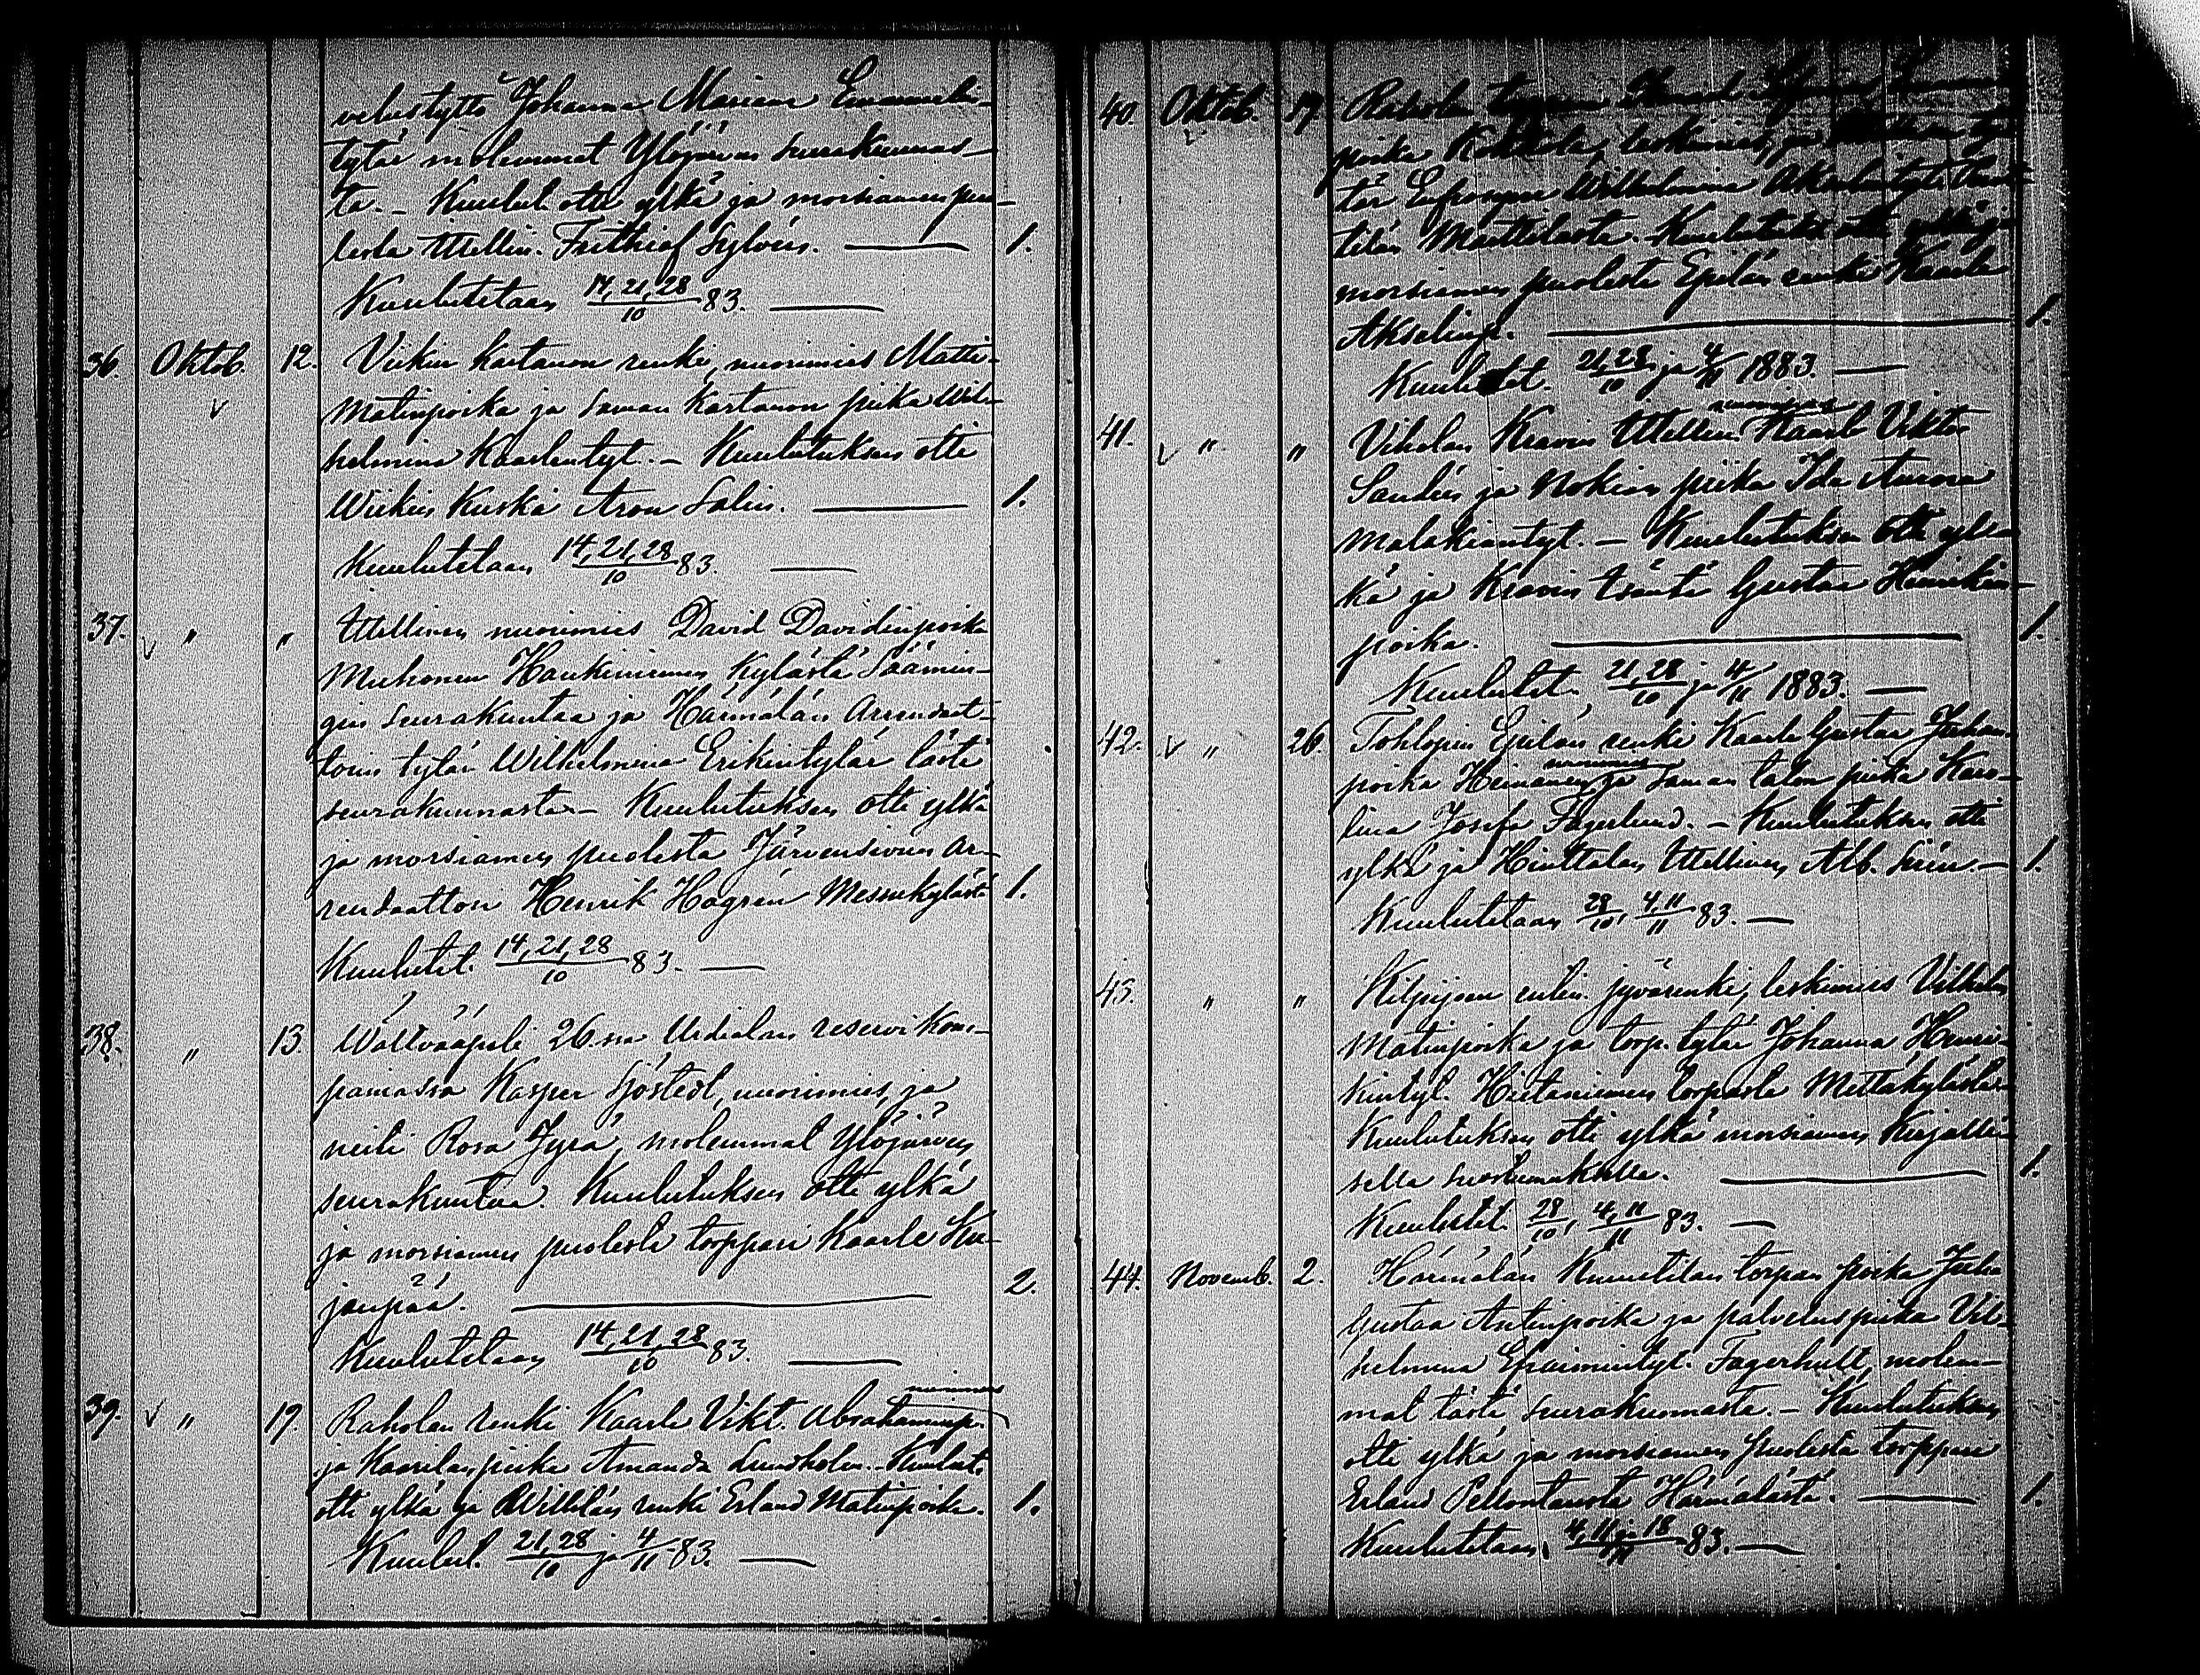 velustyttö Johanna Maria Emanuelin-
tytär molemmat Ylöjärven seurakunnas-
ta. – Kuulut. otti ylkä ja morsiamen puo-
lesta Itellin. Frithiof Sylvén. 1.
Kuulutetaan 14,21,28/10 83.
36. Oktob. 12. Viikin kartanon renki, nuorimies Matti
Matinpoika ja saman kartanon piika Wil-
helmina Kaarlentyt. – Kuulutuksen otti
Wiikin Kuski Aron Salin. 1.
Kuulutetaan 14,21,28/10 83.
37. " " Itellinen nuorimies David Davidinpoika
Muhonen Haukiniemen Kylästä Säämin-
gin seurakuntaa ja Härmälän Arrendaat-
torin tytär Wilhelmina Erikintytär tästä
seurakunnasta – Kuulutuksen otti ylkä
ja morsiamen puolesta Järvensivun Ar-
rendaattori Henrik Hagrén Messukylästä 1.
Kuulutet. 14,21,28/10 83.
38. " 13. Wältvääpeli 26.na Urdialan reservikom-
paniassa Kasper Sjöstedt, nuorimies, ja
neiti Rosa Jyrä, molemmat Ylöjärven
seurakuntaa. Kuulutuksen otti ylkä
ja morsiamen puolesta torppari Kaarle Ku-
janpää. 2.
Kuulutetaan 14,21,28/10 83.
nuorimies
39. " 19. Raholan renki Kaarle Vikt. Abrahaminp.
ja Kaarilan piika Amanda Lindholm. – Kuulut.
otti ylkä ja Willilän renki Erland Matinpoika. 1.
Kuulut. 21,28/10 ja 4/11 83.
40. Oktob. 19. Raholan
poika leskimies, ja
tär Eufrosyne Wilhelmina
tilän Marttilasta. Kuulutuksen otti ylkä ja
morsiamen puolesta Epilän renki Kaarle
Akselinp. 1.
Kuulutet. 21,28/10 ja 4/11 1883.
nuorimies
41. " " Viholan Kravin Itellinen Kaarle Viktor
Sandén ja Nokian piika Ida Aurora
Malakiantyt. – Kuulutuksen otti yl-
kä ja Kravin Isäntä Gustaa Heinrikin-
poika. 1.
Kuulutet. 21,28/10 ja 4/11 1883.
42. " 26. Tohlopin Epilän renki Kaarle Gustaa Juhan-
nuorimies
poika Heinänen ja saman talon piika Karo-
lina Josefa Fagerlund. – Kuulutuksen otti
ylkä ja Hinttalan Itellinen Alb. Sirén. – 1.
Kuulutetaan 28/10, 4,11/11 83.
43. " " Kilpijoen entin. jyvärenki, leskimies Vilhelm
Matinpoika ja torp. tytär Johanna Henri-
kintyt. Hietaniemen torpasta
Kuulutuksen otti ylkä morsiamen Kirjalli-
sella suostumuksella. 1.
Kuulutet. 28/10, 4,11/11 83.
44. Novemb. 2. Härmälän torpan poika Juha
Gustaa Antinpoika ja palveluspiika Vil-
helmina Efraimintyt. Fagerhult, molem-
mat tästä seurakunnasta. – Kuulutuksen
otti ylkä ja morsiamen puolesta torppari
Erland Pellontausta Härmälästä. 1.
Kuulutetaan 4,11 ja 18/11 83.